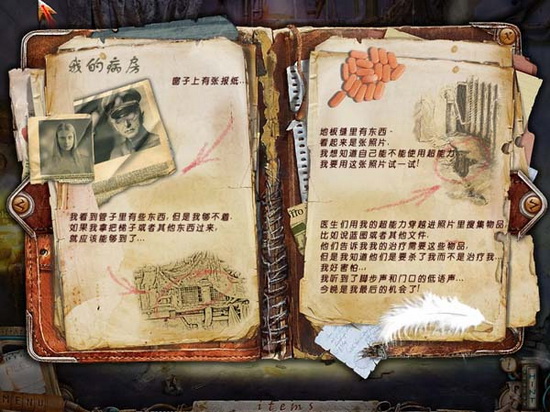 我的病房
窗子上有张报纸...
我看到管子里有些东西,但是我够不着.
如果我拿把梯子或者其他东西过来,
就应该能够到了...
地板缝里有东西.
看起来是张照片.
我想知道自己能不能使用超能力
我要用这张照片试一试!
医生们用我的超能力穿越进照片里搜集物品
比如说蓝图或者其他文件.
他们告诉我我的治疗需要这些物品
但是我知道他们是要杀了我而不是治疗我.
我好害怕...
我听到了脚步声和门口的低语声...
今晚是我最后的机会了!
MENU
items